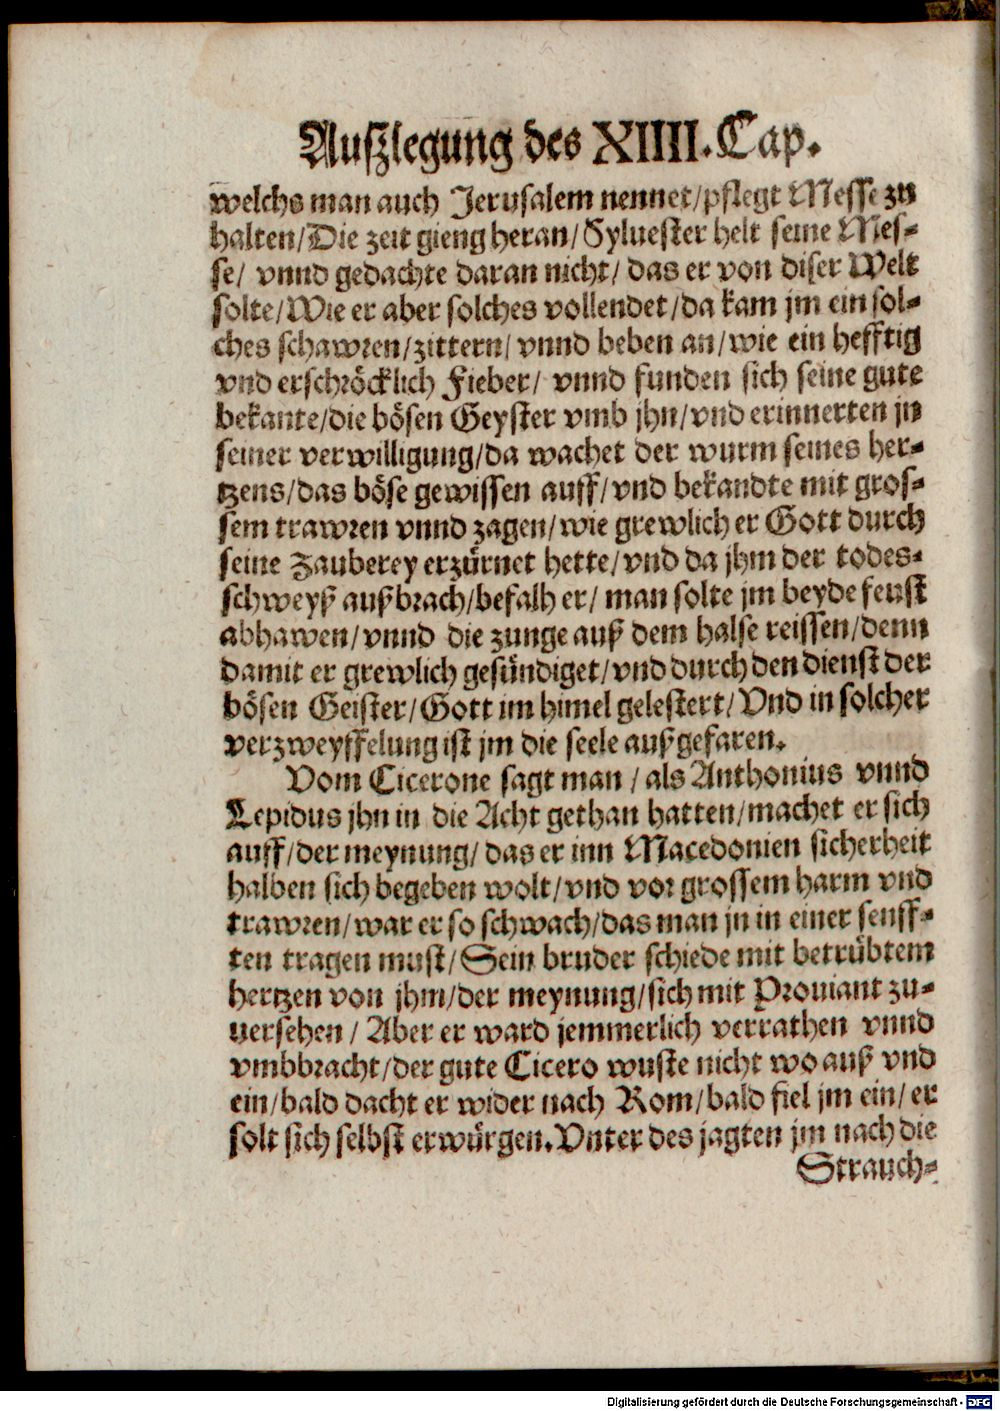 Auſzlegung des XIIII. Cap.
welchs man auch Jeruſalem nennet/pflegt Meſſe zu
halten/Die zeit gieng heran/Sylueſter helt ſeine Meſ-
ſe/ vnnd gedachte daran nicht/ das er von diſer Welt
ſolte/Wie er aber ſolches vollendet/da kam jm ein ſol-
ches ſchawren/zittern/ vnnd beben an/wie ein hefftig
vnd erſchröcklich Fieber/ vnnd funden ſich ſeine gute
bekante/die böſen Geyſter vmb jhn/vnd erinnerten jn
ſeiner verwilligung/da wachet der wurm ſeines her-
tzens/das böſe gewiſſen auff/vnd bekandte mit groſ-
ſem trawren vnnd zagen/wie grewlich er Gott durch
ſeine Zauberey erzürnet hette/vnd da jhm der todes-
ſchweyß außbrach/befalh er/ man ſolte jm beyde feuſt
abhawen/vnnd die zunge auß dem halſe reiſſen/denn
damit er grewlich geſündiget/vnd durch den dienſt der
böſen Geiſter/Gott im himel geleſtert/Vnd in ſolcher
verzweyffelung iſt jm die ſeele außgefaren.
Vom Cicerone ſagt man / als Anthonius vnnd
Lepidus jhn in die Acht gethan hatten/machet er ſich
auff/der meynung/das er inn Macedonien ſicherheit
halben ſich begeben wolt/vnd vor groſſem harm vnd
trawren/war er ſo ſchwach/das man jn in einer ſenff-
ten tragen muſt/Sein bruder ſchiede mit betrübtem
hertzen von jhm/der meynung/ſich mit Prouiant zu-
uerſehen / Aber er ward jemmerlich verrathen vnnd
vmbbracht/der gute Cicero wuſte nicht wo auß vnd
ein/bald dacht er wider nach Rom/bald fiel jm ein/er
ſolt ſich ſelbſt erwürgen. Vnter des jagten jm nach die
Strauch-
Digitalisierung gefördert durch die Deutsche Forschungsgemeinschaft - DFG